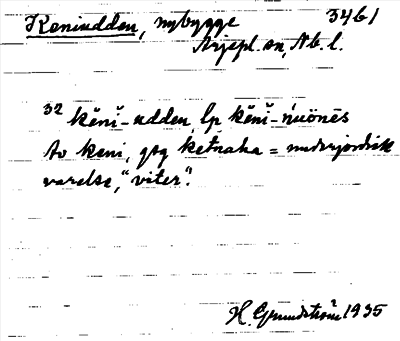 Keniudden, nybygge 3461
Arjepl. sn, Nb. l.
32 kĕnĭ-udden, lp kĕnĭ-ńuönēs
Av keni, jfg ketnaha = underjordisk
varelse, "viter".
H. Grundström 1935